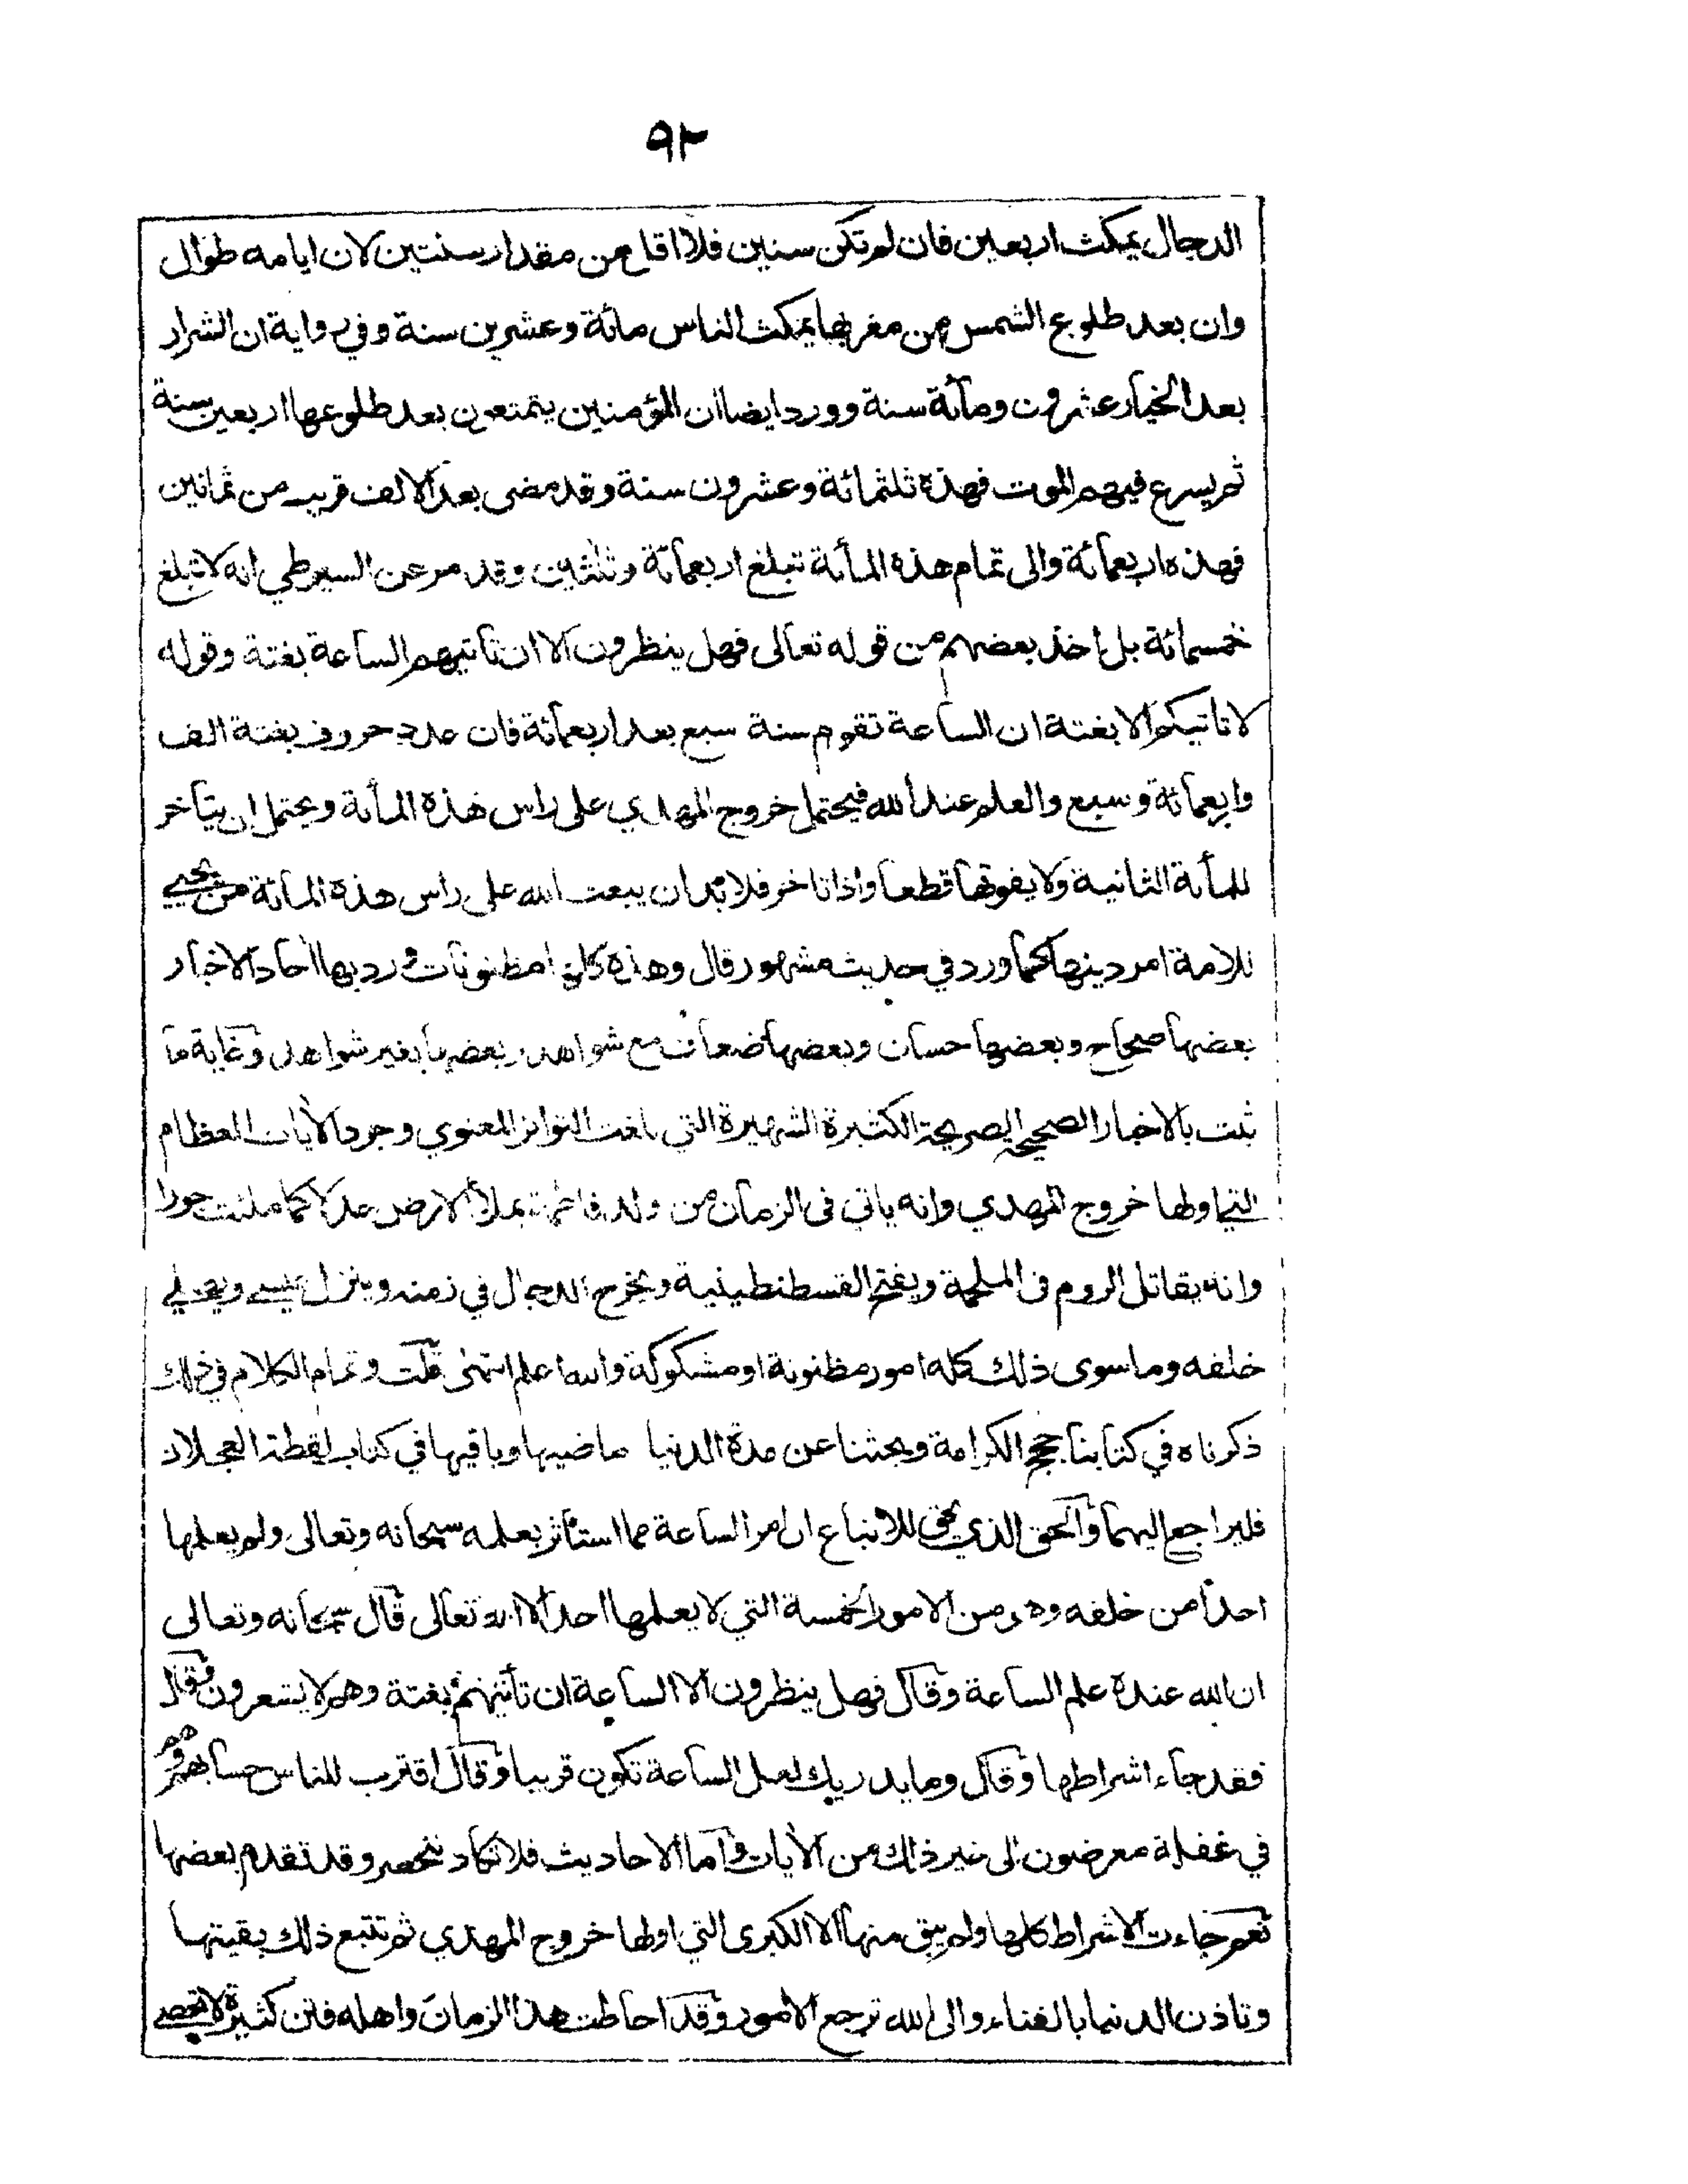 ٩٢
الدجال يمكث اربعين فان لم تكن سنين فلا اقل من مقدار سنتين لان ايامه طوال
وان بعد طلوع الشمس من مغربها يمكث الناس مائة وعشرين سنة وفي رواية ان الشرار
بعد الخيار عشرون ومائة سنة وورد ايضا ان المؤمنين يتمتعون بعد طلوعها اربعين سنة
ثم يسرع فيهم الموت فهذه ثلثمائة وعشرون سنة وقد مضى بعد الالف قريب من ثمانين
فهذه اربعمائة والى تمام هذه المأئة تبلغ اربعمائة وثلثين وقد مر عن السيوطي انه لا تبلغ
خمسمائة بل اخذ بعضهم من قوله تعالى فهل ينظرون الا ان تأتيهم الساعة بغتة وقوله
لا تاتيكم الا بغتة ان الساعة تقوم سنة سبع بعد اربعمائة فان عدد حروف بغتة الف
واربعمائة وسبع والعلم عند الله فيحتمل خروج المهدي على راس هذه المأئة ويحتمل ان يتأخر
للمأئة الثانية ولا يفوتها قطعا واذا تاخر فلا بد ان يبعث الله على راس هذه المائة من يحيي
للامة امر دينها كما ورد في حديث مشهور قال وهذه كلها مظنونات ورد بها احاد الاخبار
بعضها صحاح وبعضها حسان وبعضها ضعاف مع شواهد وبعضها بغير شواهد وغاية ما
ثبت بالاخبار الصحيحة الصريحة الكثيرة الشهيرة التي بلغت التواتر المعنوي وجود الأيات العظام
التي اولها خروج المهدي وانه ياتي فى الزمان من ولد فاطمة يملأ الارض عدلا كما ملئت جورا
وانه يقاتل الروم فى الملحمة ويفتح القسطنطينية ويخرج الدجال في زمنه وينزل عيسى ويصلي
خلفه وما سوى ذلك كله امور مظنونة او مشكوكة والله اعلم انتهى قلت وتمام الكلام في ذلك
ذكرناه في كتابنا حجج الكرامة وبحثنا عن مدة الدنيا ماضيها وباقيها في كتاب لقطة العجلان
فليراجع اليهما والحق الذي يحق للاتباع ان امر الساعة مما استأثر بعلمه سبحانه وتعالى ولم يعلمها
احدا من خلقه وهي من الامور الخمسة التي لا يعلمها احد الا الله تعالى قال سبحانه وتعالى
ان الله عنده علم الساعة وقال فهل ينظرون الا الساعة ان تأتيهم بغتة وهم لا يشعرون وقال
فقد جاء اشراطها وقال وما يدريك لعل الساعة تكون قريبا وقال اقترب للناس حسابهم وهم
في غفلة معرضون الى غير ذلك من الأيات واما الاحاديث فلا تكاد تنحصر وقد تقدم بعضها
نعم جاءت الاشراط كلها ولم يبق منها الا الكبرى التي اولها خروج المهدي ثم تتبع ذلك بقيتها
وتاذن الدنيا بالفناء والى الله ترجع الامور وقد احاطت هذا الزمان واهله فتن كثيرة لا تحصى